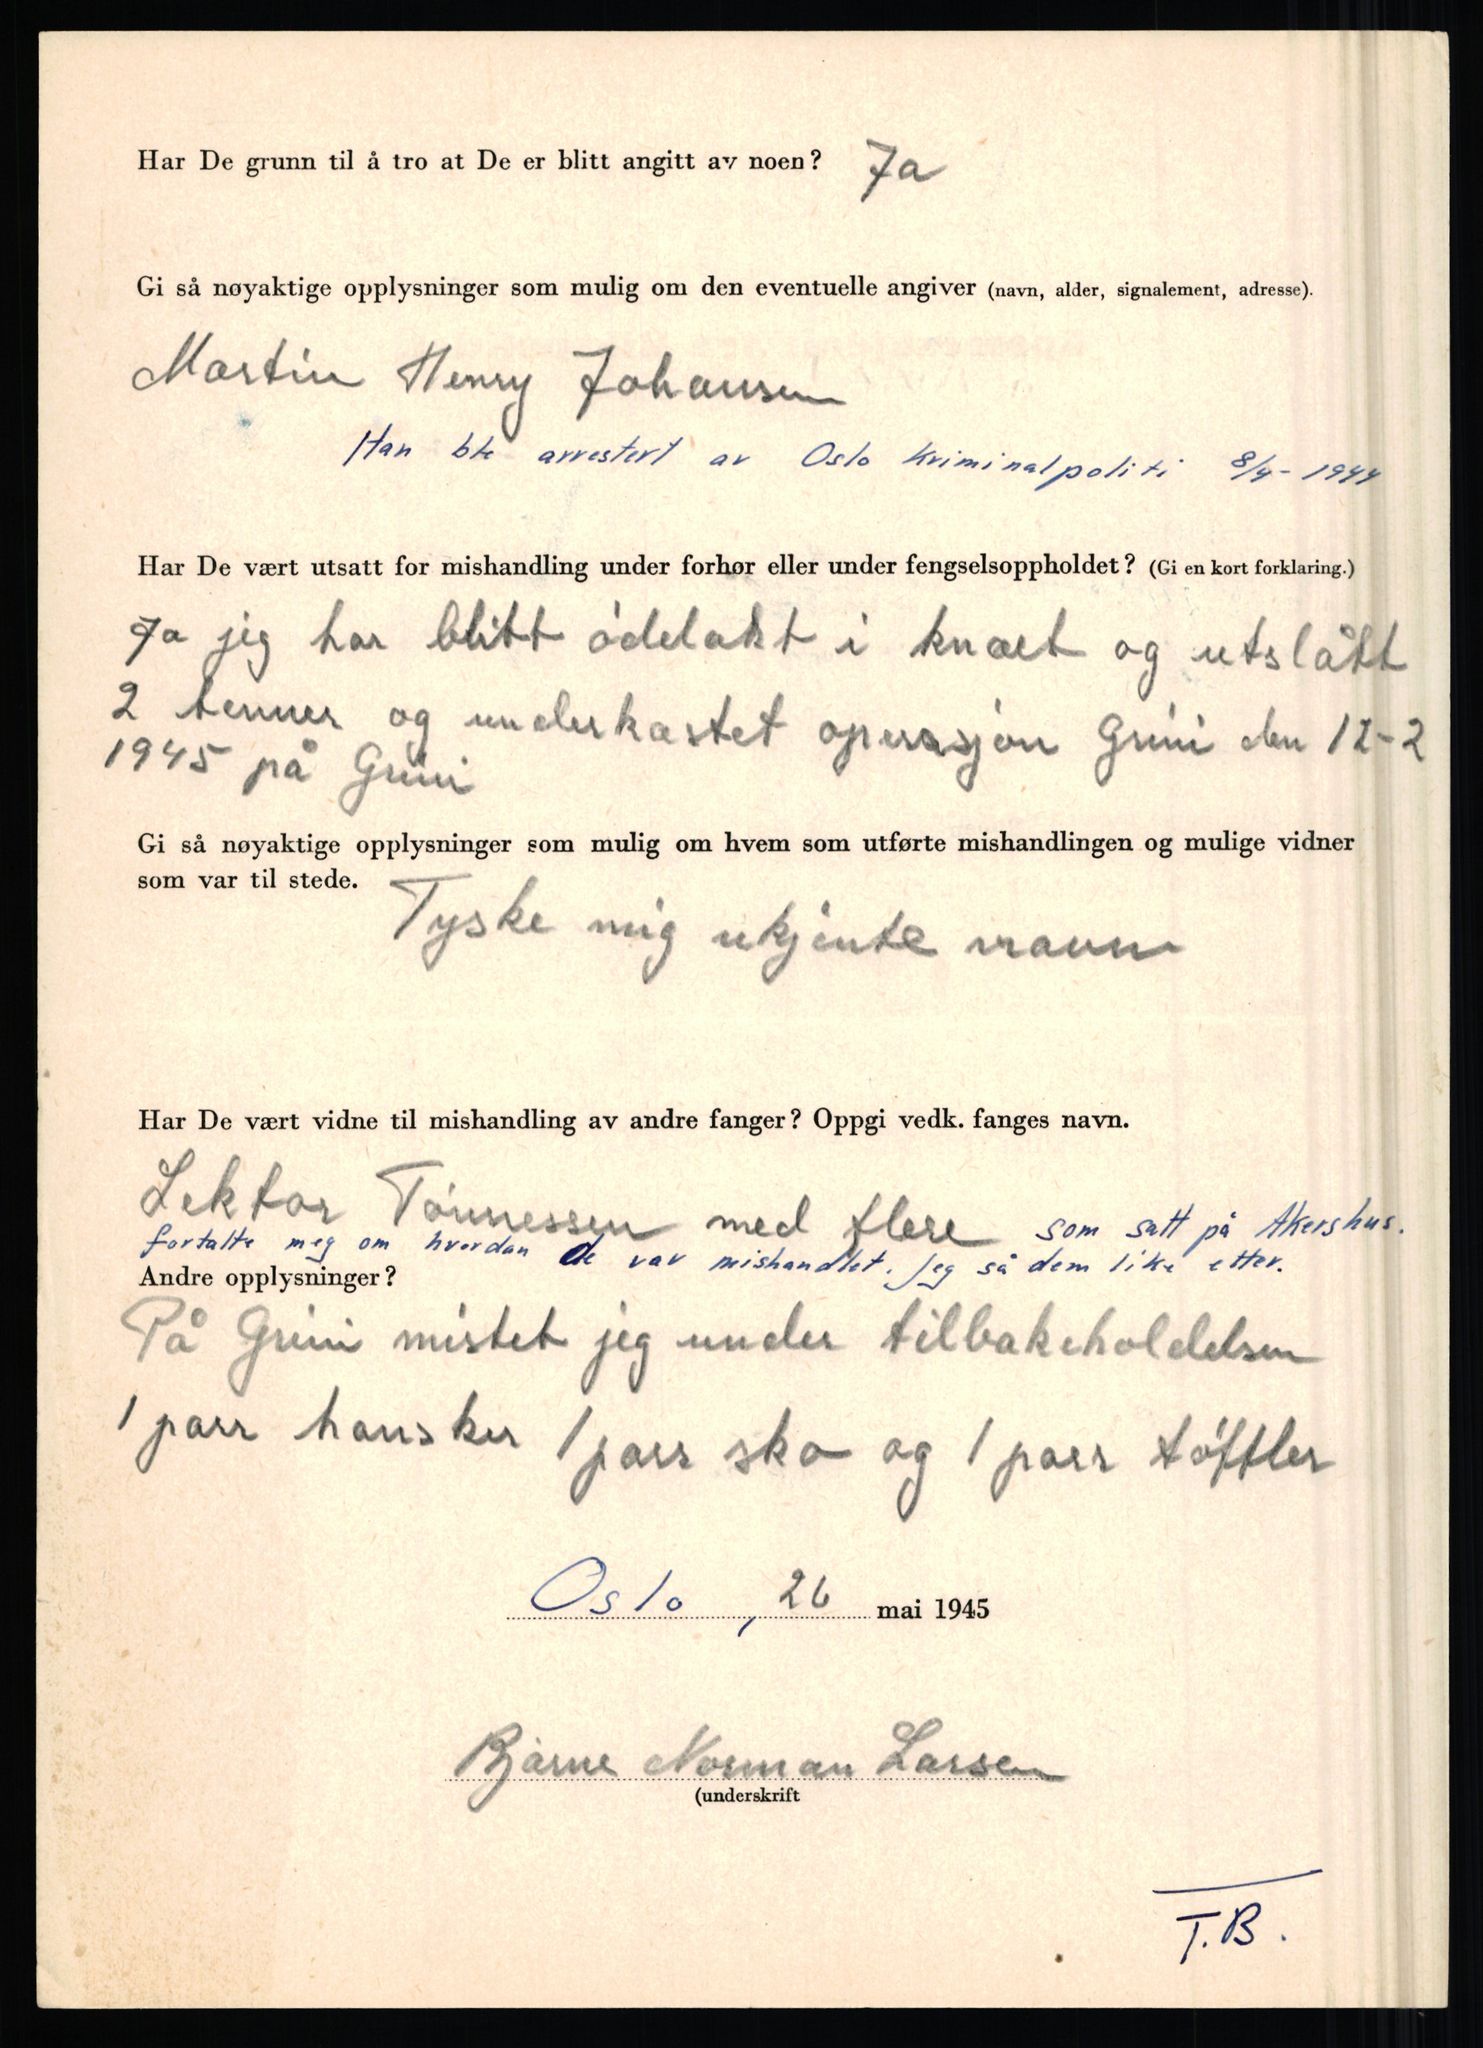 Har De grunn til å tro at De er blitt angitt av noen? Ja
Gi så nøyaktige opplysninger som mulig om den eventuelle angiver (navn, alder, signalement, adresse).
Martin Henry Johansen
Han ble arrestert av Oslo Kriminalpoliti 8/4-1944
Har De vært utsatt for mishandling under forhør eller under fengselsoppholdet? (Gi en kort forklaring.)
Ja jeg har blitt ödelakt i knæt og utslått
2 tenner og underkastet operasjon Grini den 12-2
1945 på Grini
Gi så nøyaktige opplysninger som mulig om hvem som utførte mishandlingen og mulige vidner
som var til stede. Tyske mig ukjente navn
Har De vært vidne til mishandling av andre fanger? Oppgi vedk. fanges navn.
Lektor Tönnessen med flere som satt på Akershus.
fortalte meg om hvordan de var mishandlet. Jeg så dem like etter.
Andre opplysninger?
På Grini mistet jeg under tilbakeholdelsen
1 parr hansker 1 parr sko og 1 parr töffler
Oslo, 26 mai 1945
Bjarne Norman Larsen
(underskrift
T.B.